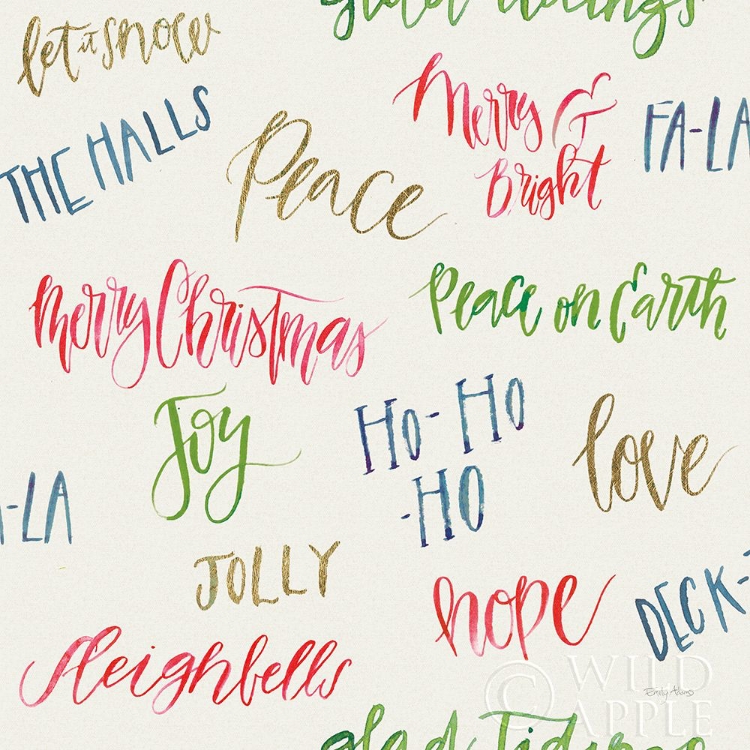 glad tidings
let it snow
THE HALLS
Merry &
Bright
FA-LA
Peace
Merry Christmas
Peace on Earth
Joy
HO-HO
-HO
love
-LA
JOLLY
hope
DECK-
Sleighbells
© WILD
APPLE
glad tidings